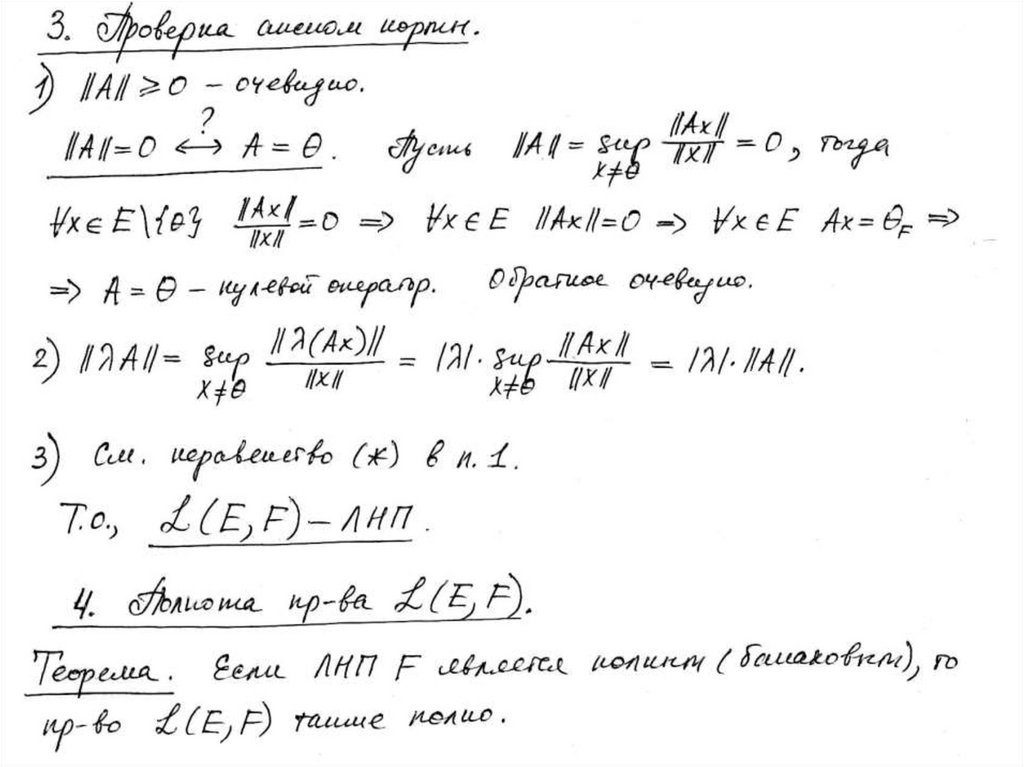 3. Проверка аксиом нормы.
1) ||A|| ⩾ 0 – очевидно.
||A|| = 0 ⟷? A = θ. Пусть ||A|| = sup_{x≠θ} ||Ax||/||x|| = 0, тогда
∀x∈E\{θ} ||Ax||/||x|| = 0 ⇒ ∀x∈E ||Ax||=0 ⇒ ∀x∈E Ax = θ_F ⇒
⇒ A = θ – нулевой оператор. Обратное очевидно.
2) ||λA|| = sup_{x≠θ} ||λ(Ax)||/||x|| = |λ|· sup_{x≠θ} ||Ax||/||x|| = |λ|·||A||.
3) См. неравенство (*) в п. 1.
Т.о., ℒ(E,F) – ЛНП.
4. Полнота пр-ва ℒ(E,F).
Теорема. Если ЛНП F является полным (банаховым), то
пр-во ℒ(E,F) также полно.